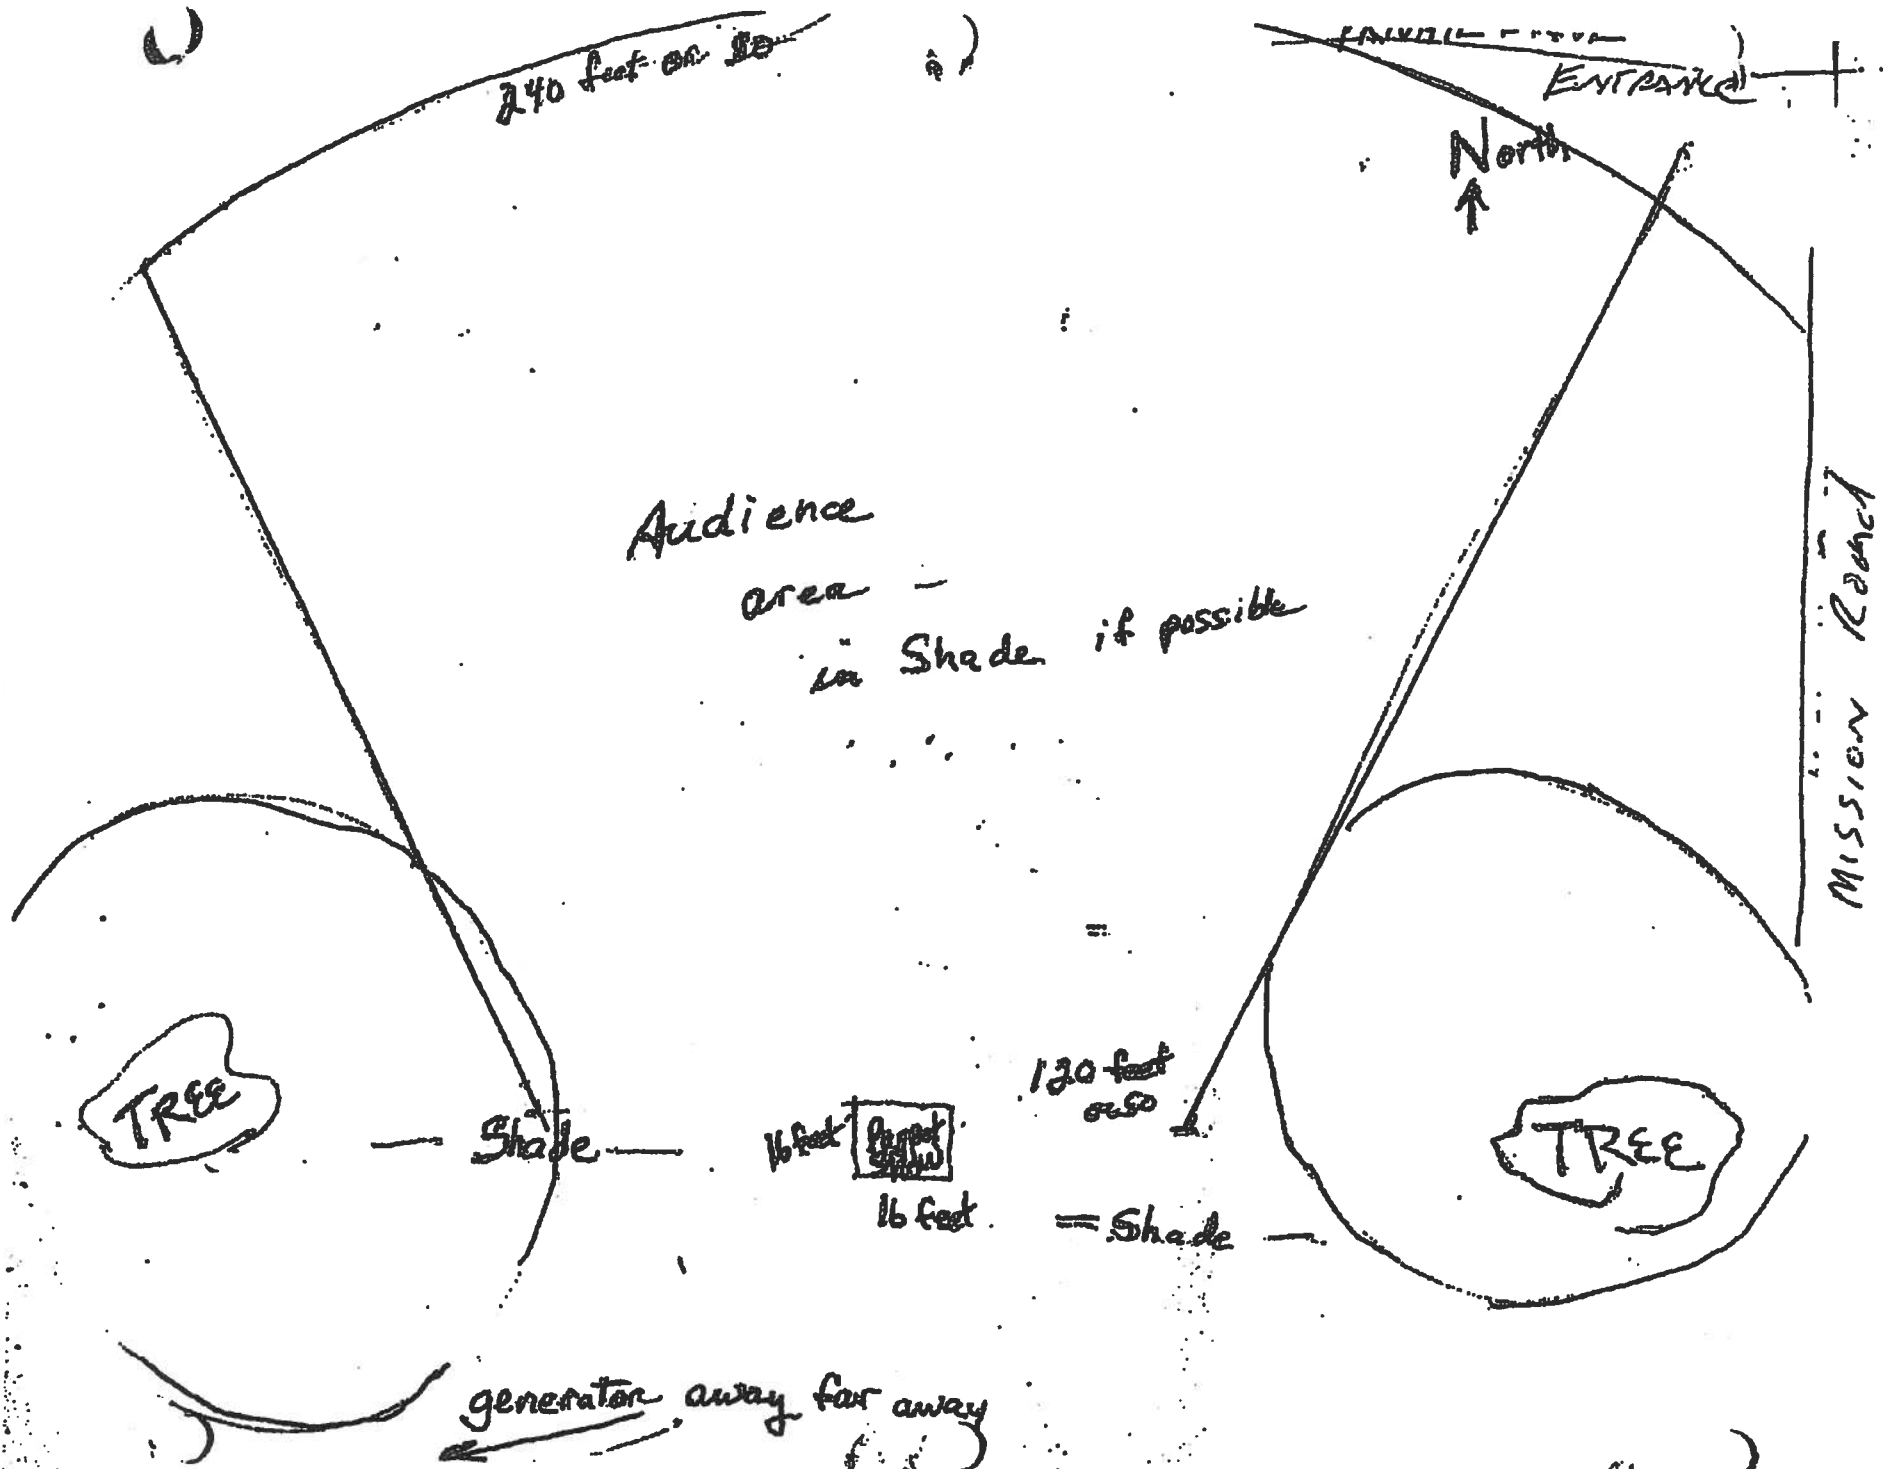 240 feet or so
ENTRANCE
North
Audience
area -
in Shade if possible
Mission Road
TREE
Shade
16 feet
Puppet
Show
16 feet
120 feet
or so
Shade
TREE
generator away far away